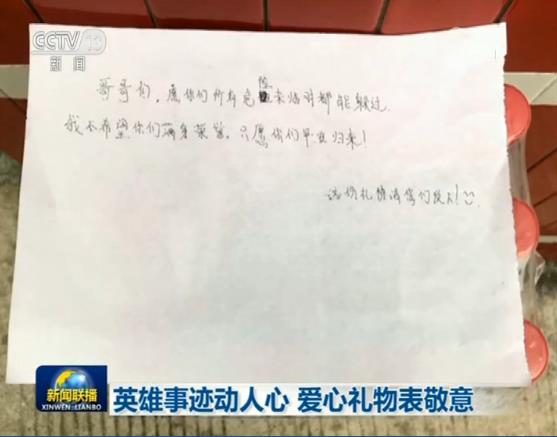 CCTV 13
新闻
哥哥们，愿你们所有危险来临时都能躲过.
我不希望你们满身荣誉，只愿你们平安归来！
请将礼物请你们收下！
新闻联播
XINWEN LIANBO
英雄事迹动人心 爱心礼物表敬意